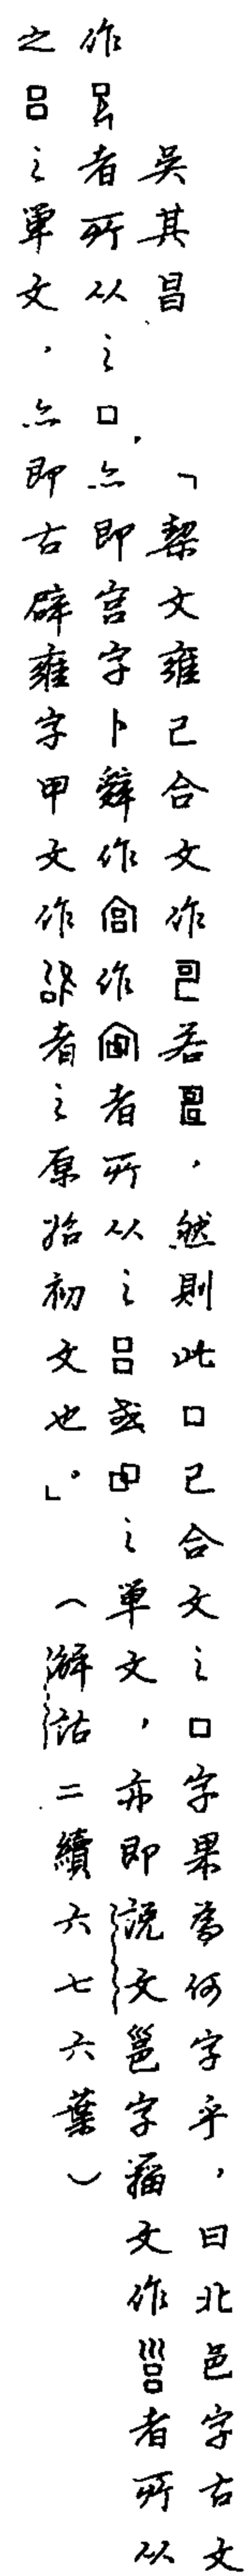 吳其昌 「契文雍己合文作若，然則此口己合文之口字果為何字乎，曰此邑字古文
作者所从之口，亦即宮字卜辭作作者所从之吕或之單文，亦即說文邕字籀文作者所从
之吕之單文，亦即古辟雍字甲文作者之原始初文也。」（解詁二續六七六葉）